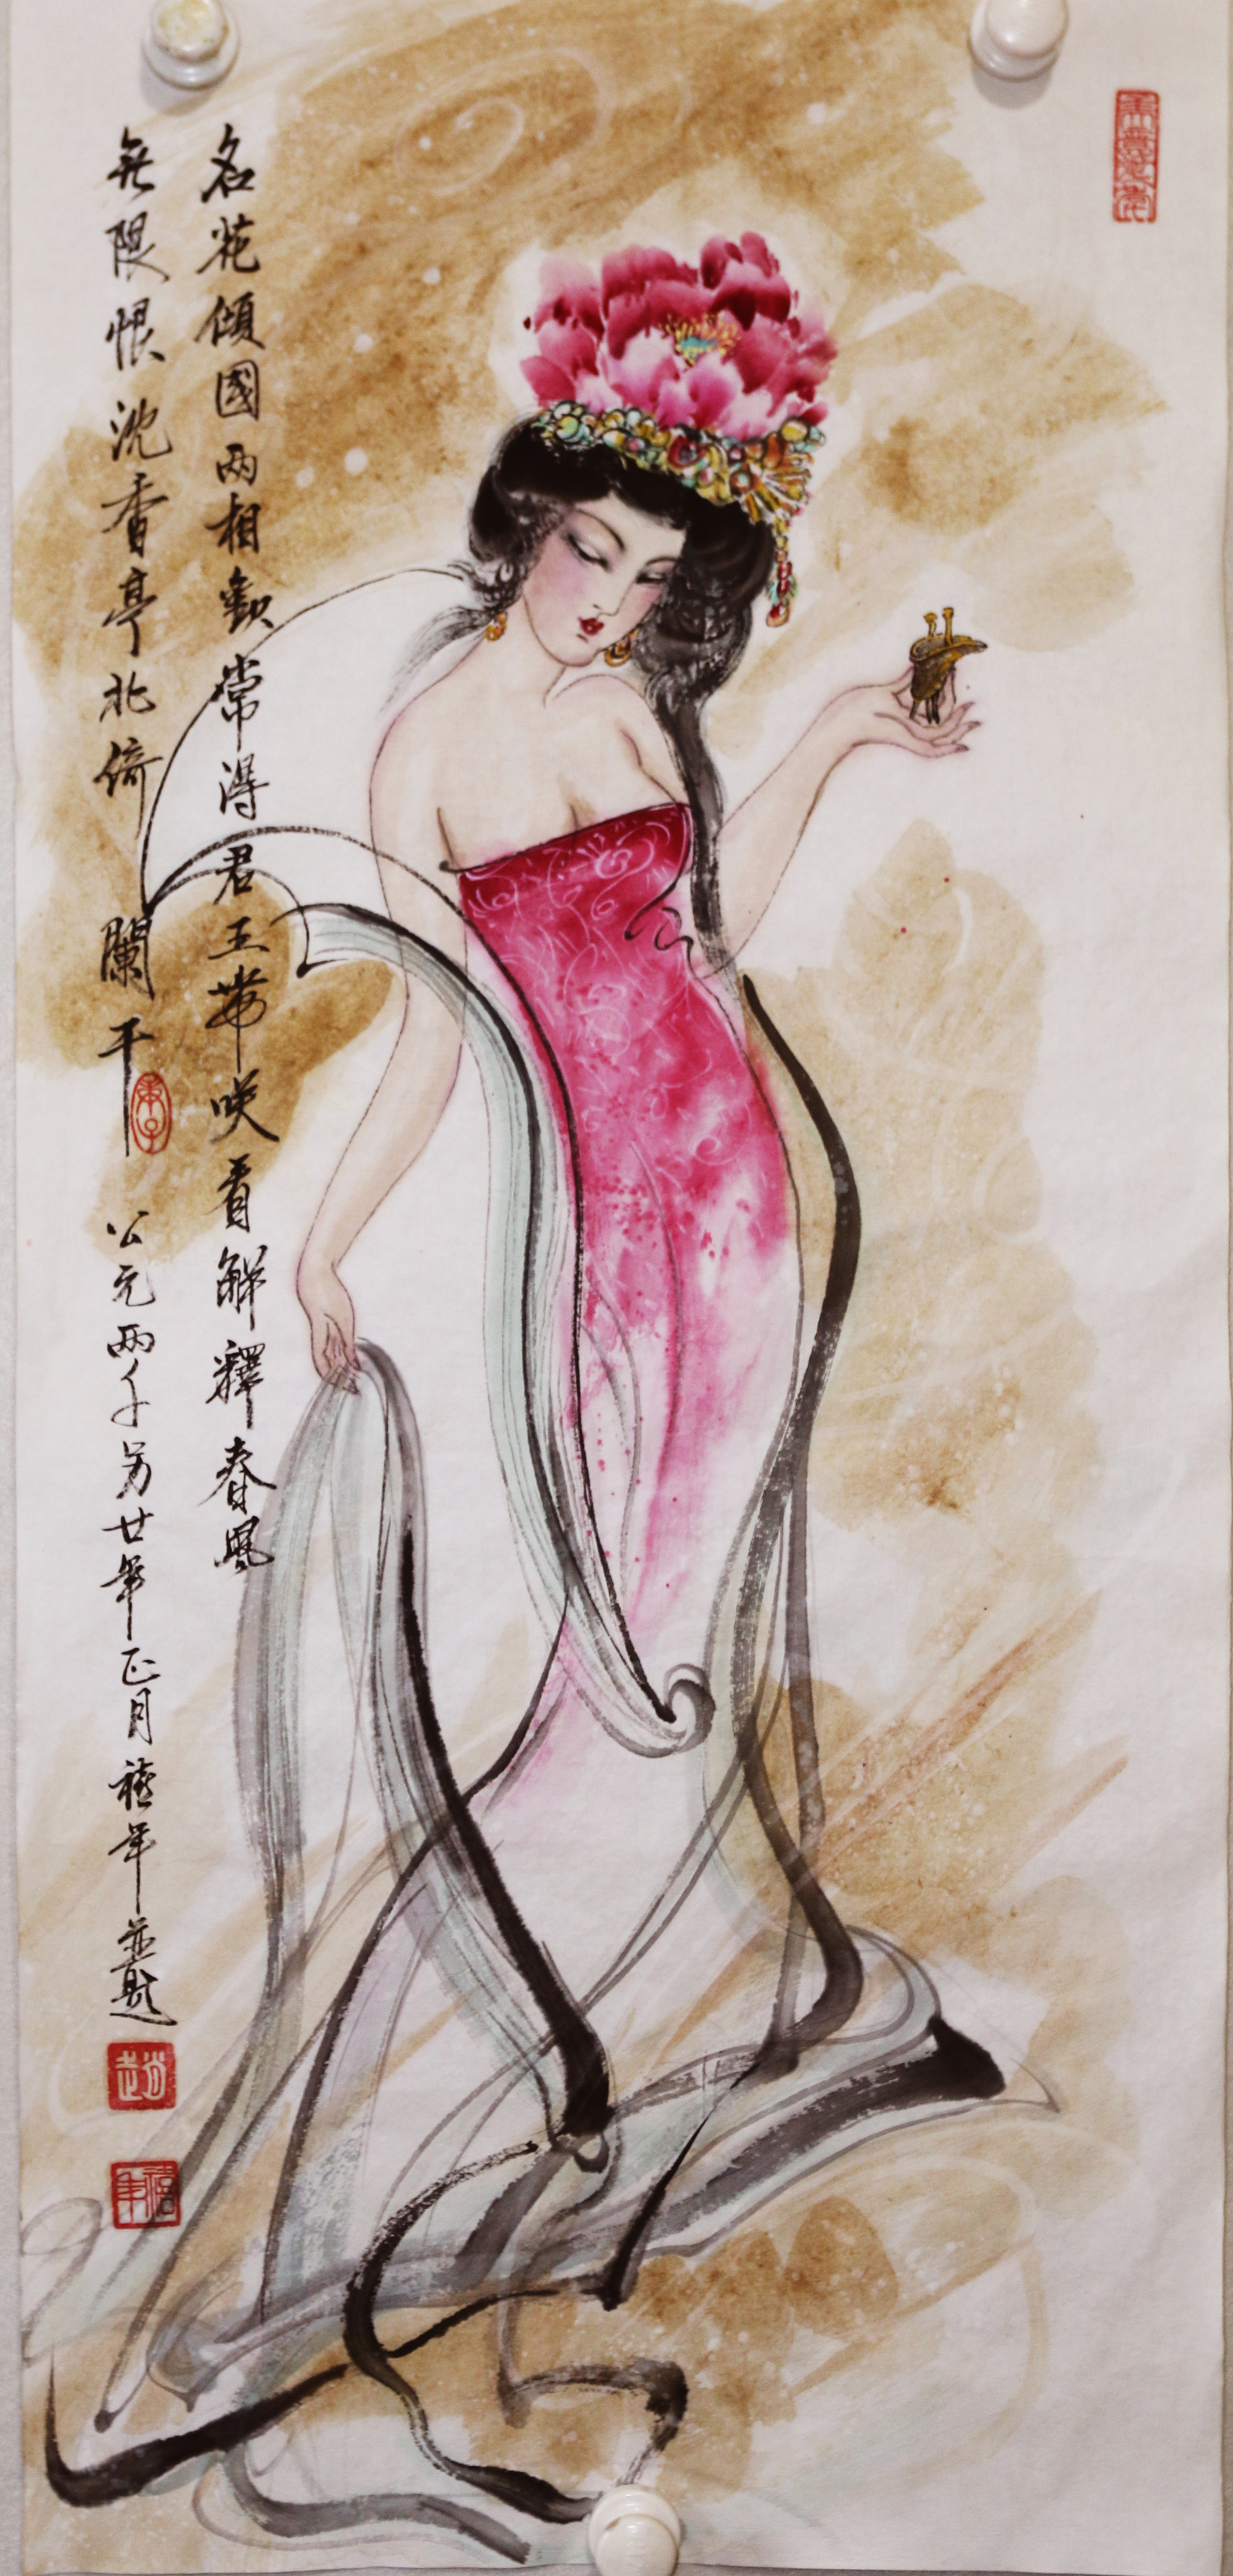 名花傾國两相歡常得君王帶咲看解釋春風
無限恨沈香亭北倚闌干 公元两千另廿年正月禧年並題
趙
禧年